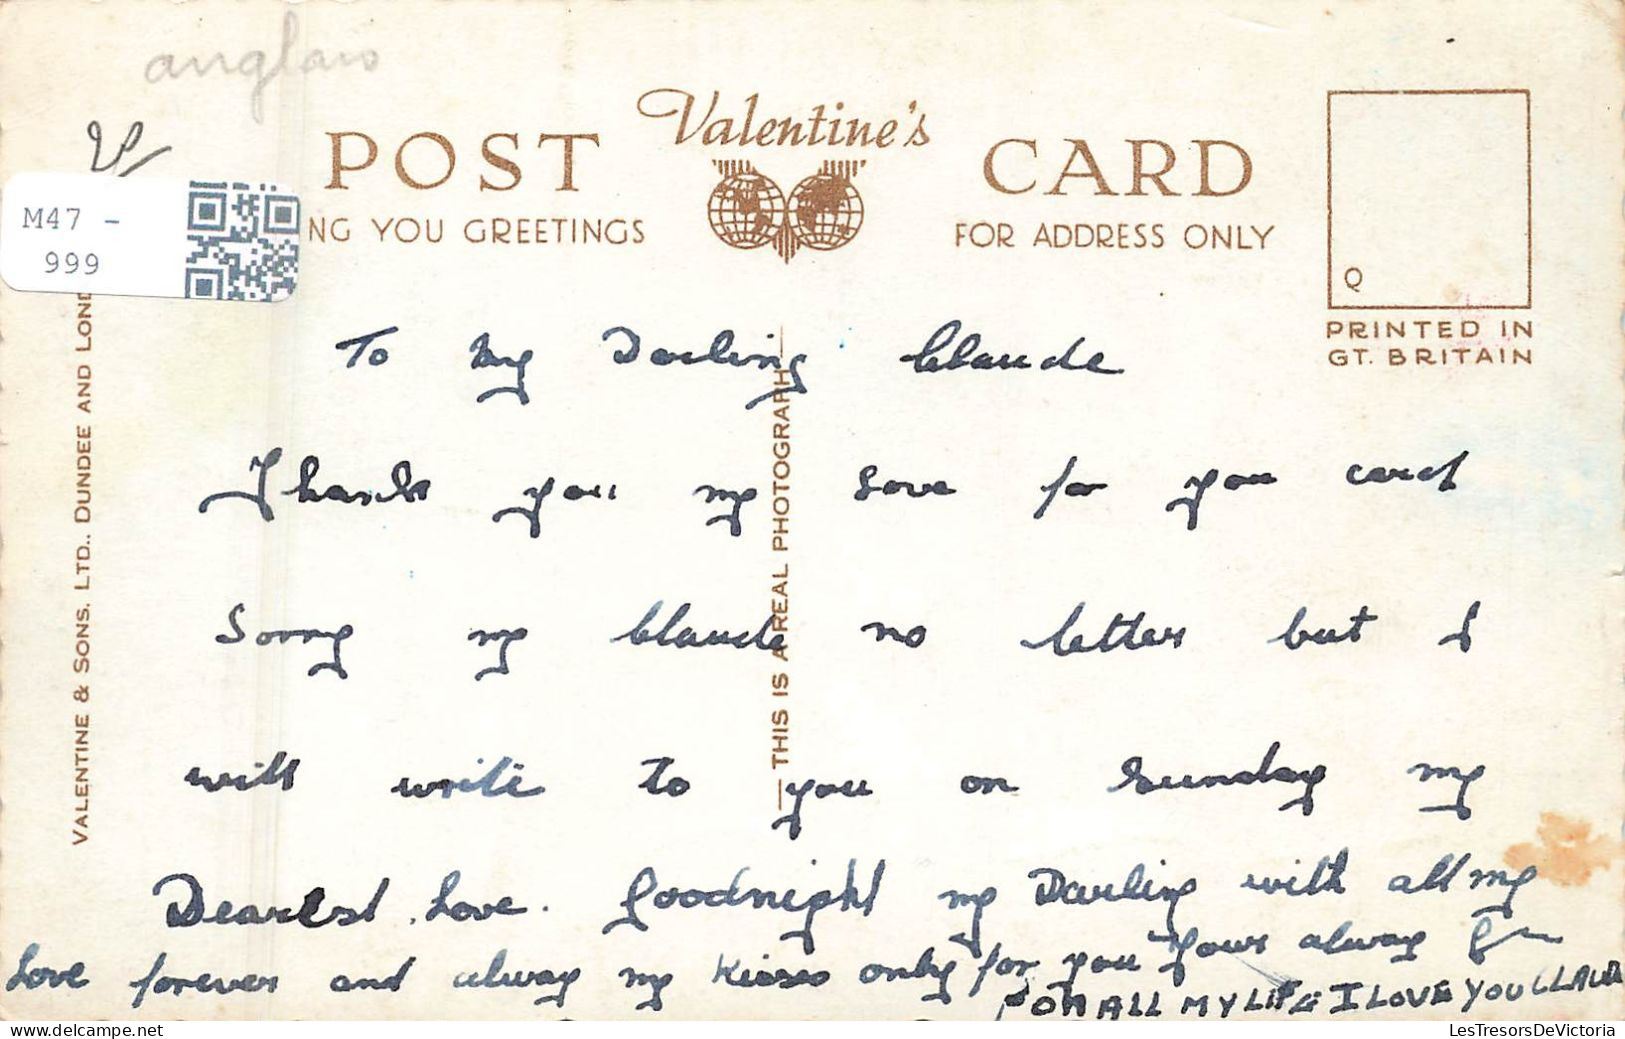 anglais
M47 -
999
POST Valentine's CARD
NG YOU GREETINGS
FOR ADDRESS ONLY
Q
PRINTED IN
GT. BRITAIN
VALENTINE & SONS. LTD., DUNDEE AND LOND
THIS IS A REAL PHOTOGRAPH
To my Darling Claude
Thanks you my Love for you card
Sorry my Claude no letter but I
will write to you on Sunday my
Dearest Love. Goodnight my Darling with all my
Love forever and alway my Kisses only for you Yours alway
FOR ALL MY LIFE I LOVE YOU CLAUDE
LesTresorsDeVictoria
delcampe.net